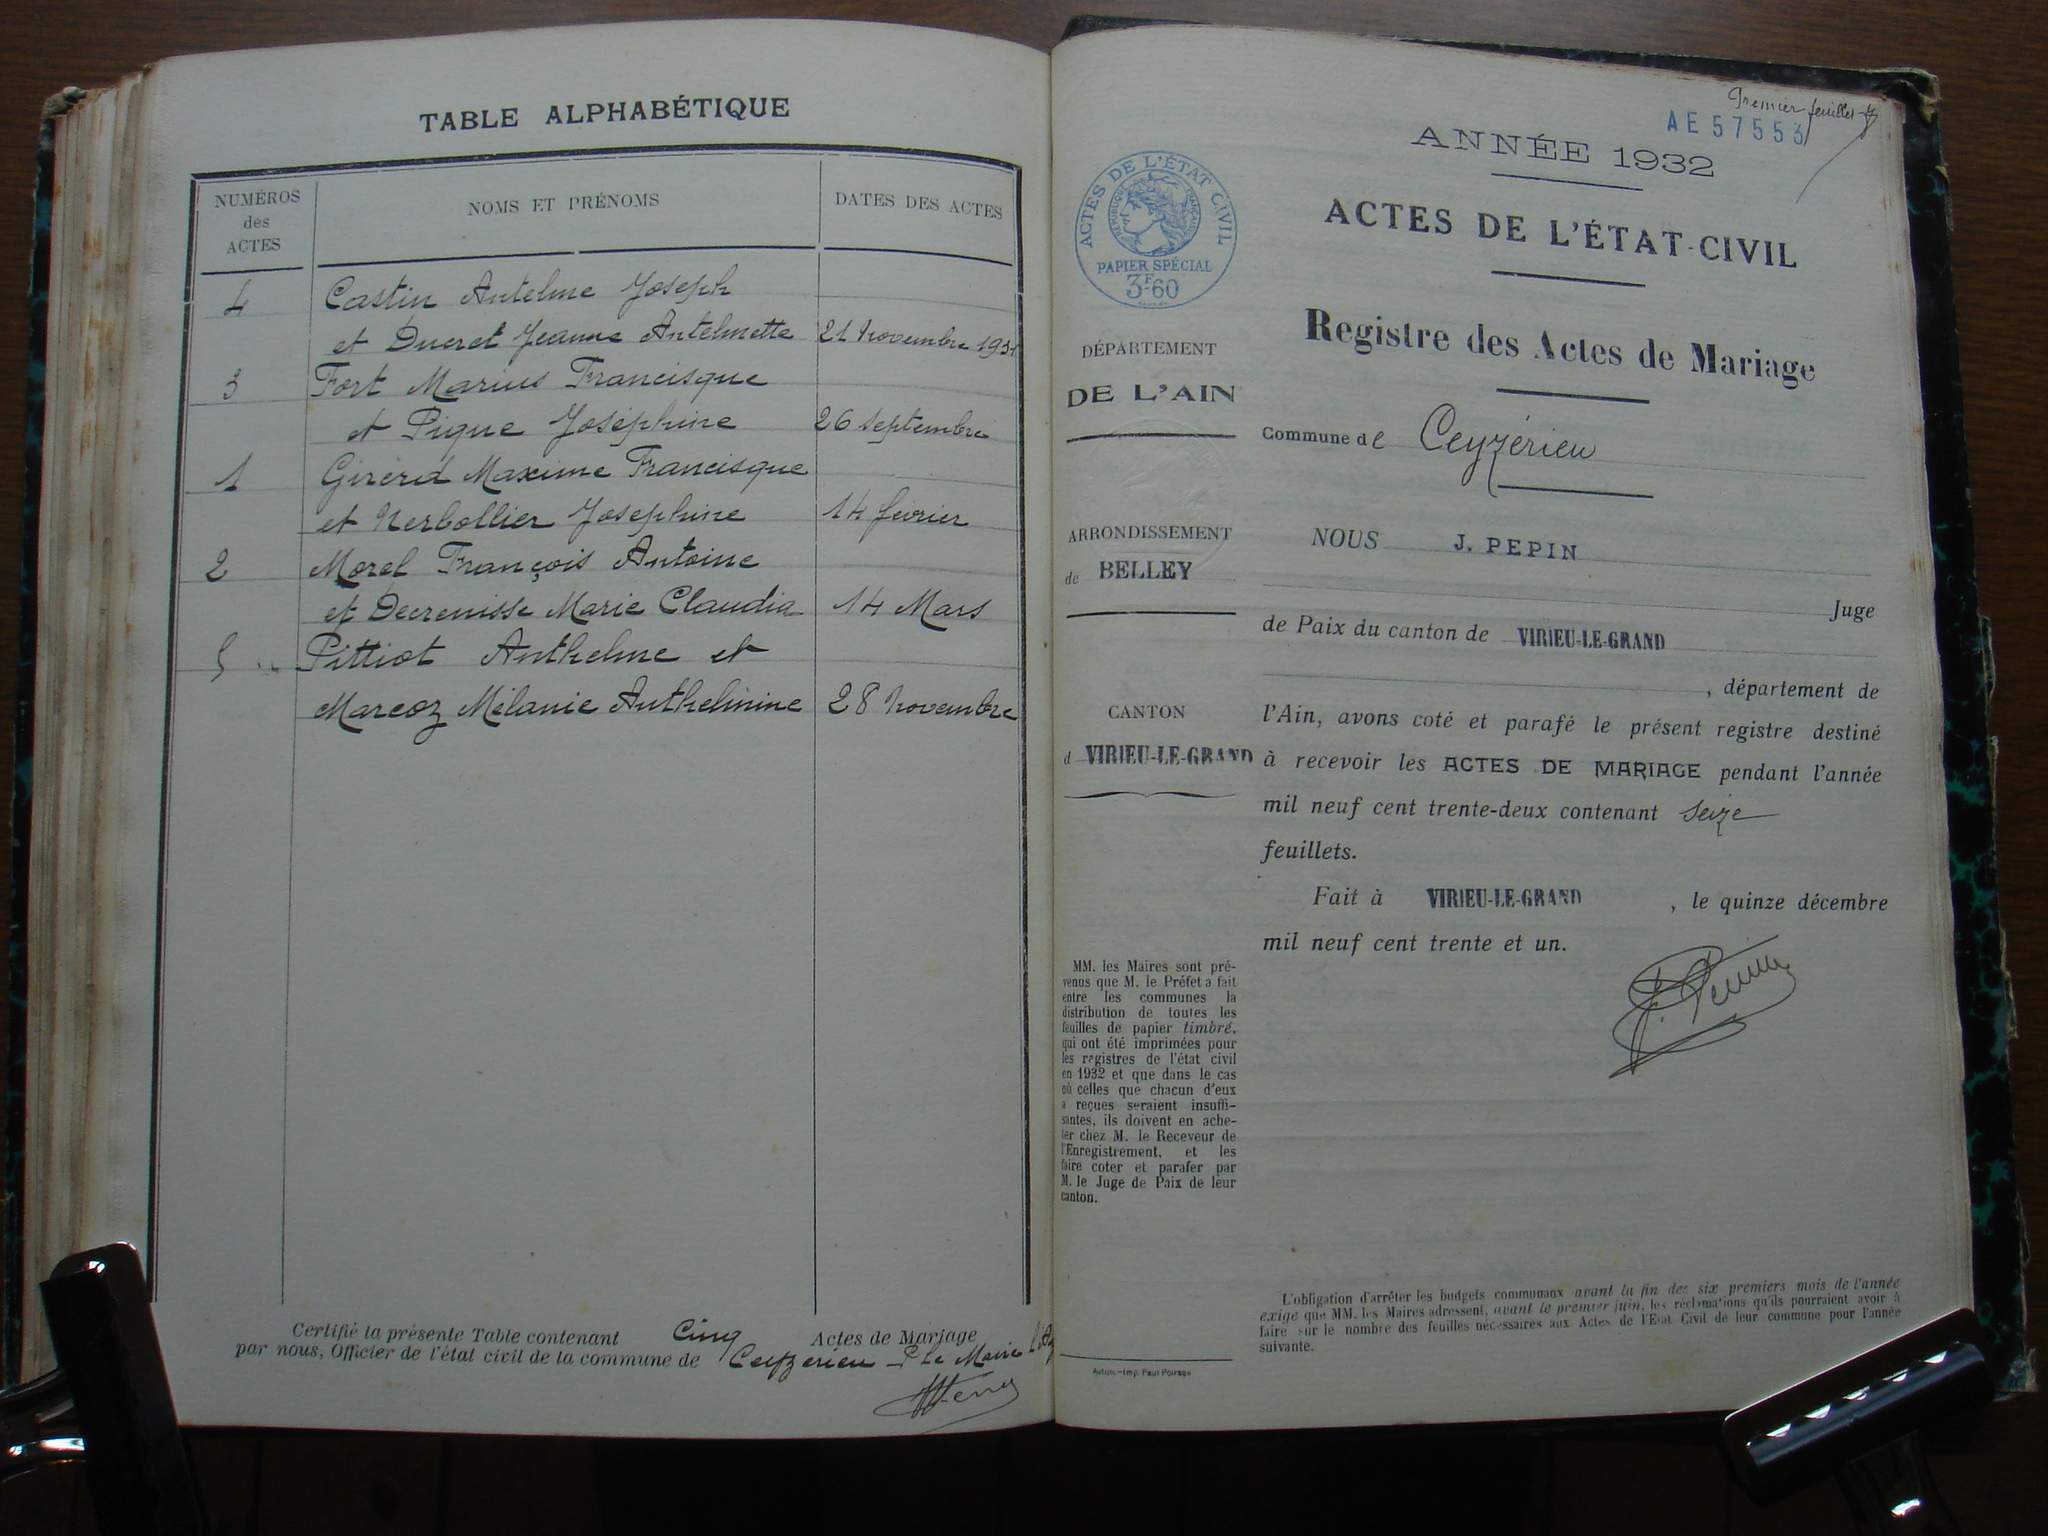 TABLE ALPHABÉTIQUE
NUMÉROS
des
ACTES
NOMS ET PRÉNOMS
DATES DES ACTES
4 Castin Antelme Joseph
et Ducret Jeanne Antelmette 21 Novembre 1931
3 Fort Marius Francisque
et Pigue Joséphine 26 septembre
1 Girerd Maxime Francisque
et Nerbollier Josephine 14 février
2 Morel François Antoine
et Decrenisse Marie Claudia 14 Mars
5 Pittiot Anthelme et
Marcoz Mélanie Anthelmine 28 Novembre
Certifié la présente Table contenant Cinq Actes de Mariage
par nous, Officier de l'état civil de la commune de Ceyzerieu P le Maire
Premier feuillet
AE 57553
ANNÉE 1932
ACTES DE L'ÉTAT-CIVIL
Registre des Actes de Mariage
Commune de Ceyzérieu
NOUS J. PEPIN
Juge
de Paix du canton de VIRIEU-LE-GRAND
, département de
l'Ain, avons coté et parafé le présent registre destiné
à recevoir les ACTES DE MARIAGE pendant l'année
mil neuf cent trente-deux contenant seize
feuillets.
Fait à VIRIEU-LE-GRAND , le quinze décembre
mil neuf cent trente et un.
J. Pepin
ACTES DE L'ÉTAT CIVIL
RÉPUBLIQUE FRANÇAISE
PAPIER SPÉCIAL
3F60
DÉPARTEMENT
DE L'AIN
ARRONDISSEMENT
de BELLEY
CANTON
d VIRIEU-LE-GRAND
MM. les Maires sont pré-
venus que M. le Préfet a fait
entre les communes la
distribution de toutes les
feuilles de papier timbré,
qui ont été imprimées pour
les registres de l'état civil
en 1932 et que dans le cas
où celles que chacun d'eux
a reçues seraient insuffi-
santes, ils doivent en ache-
ter chez M. le Receveur de
l'Enregistrement, et les
faire coter et parafer par
M. le Juge de Paix de leur
canton.
L'obligation d'arrêter les budgets communaux avant la fin des six premiers mois de l'année
exige que MM. les Maires adressent, avant le premier juin, les réclamations qu'ils pourraient avoir à
faire sur le nombre des feuilles nécessaires aux Actes de l'Etat Civil de leur commune pour l'année
suivante.
Autun.—Imp. Paul Poirson